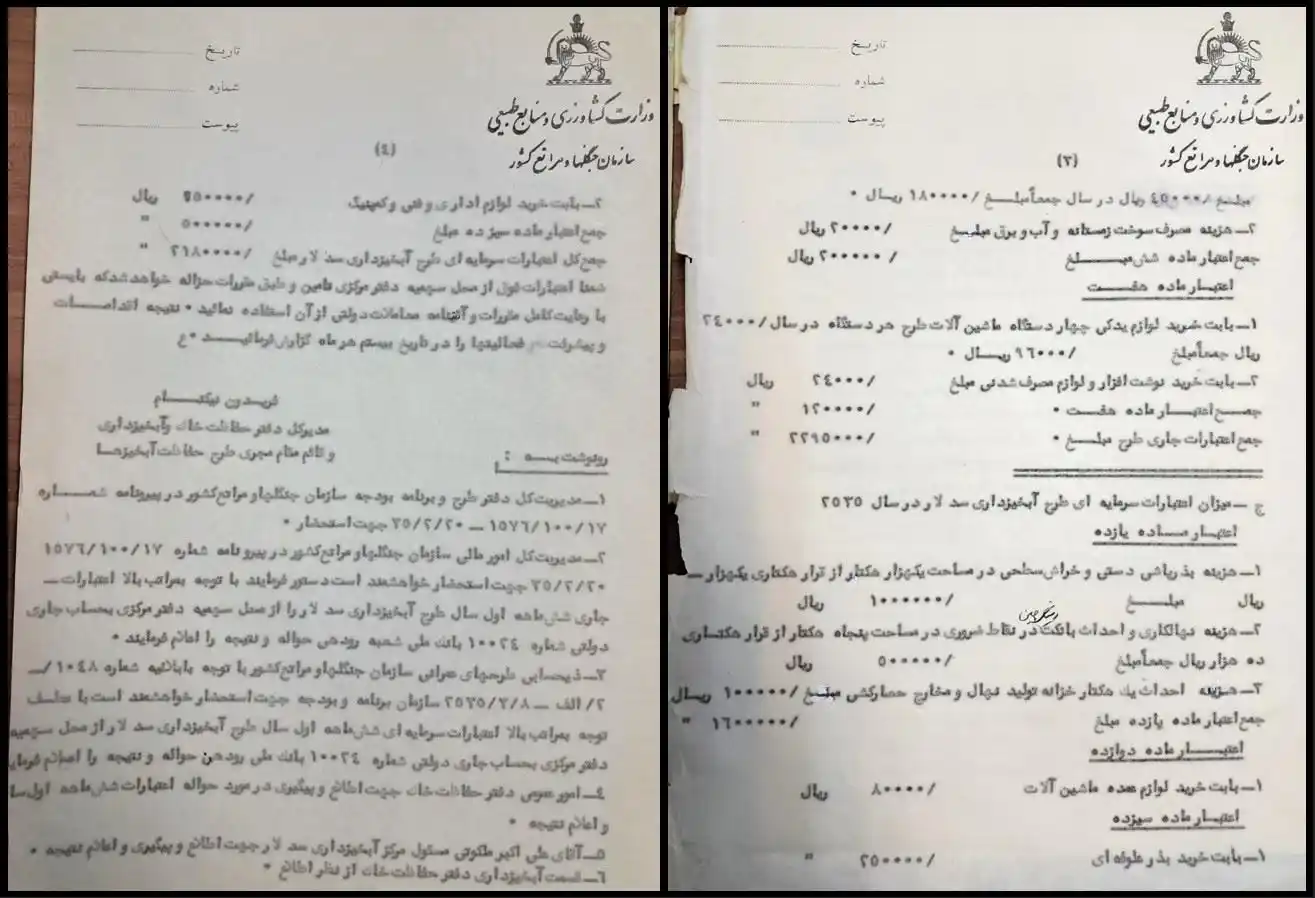 تاریخ
شماره
پیوست
وزارت کشاورزی و منابع طبیعی
سازمان جنگلها و مراتع کشور
(۳)
مبلغ /۴۵۰۰۰ ریال در سال جمعاً مبلغ /۱۸۰۰۰۰ ریال •
۲ــ هزینه مصرف سوخت زمستانه و آب و برق مبلغ /۲۰۰۰۰ ریال
جمع اعتبار ماده شش مبلغ /۲۰۰۰۰۰ ریال
اعتبار ماده هفت
۱ــ بابت خرید لوازم یدکی چهار دستگاه ماشین آلات طرح هر دستگاه در سال /۲۴۰۰۰
ریال جمعاً مبلغ /۹۶۰۰۰ ریال •
۲ــ بابت خرید نوشت افزار و لوازم مصرف شدنی مبلغ /۲۴۰۰۰ ریال
جمع اعتبار ماده هفت • /۱۲۰۰۰۰ "
جمع اعتبارات جاری طرح مبلغ • /۲۲۹۵۰۰۰ "
ج ــ میزان اعتبارات سرمایه ای طرح آبخیزداری سد لار در سال ۲۵۳۵
اعتبار ماده یازده
۱ــ هزینه بذرپاشی دستی و خراش سطحی در مساحت یکهزار هکتار از قرار هکتاری یکهزار ــ
ریال مبلغ /۱۰۰۰۰۰۰ ریال
۲ــ هزینه نهالکاری و احداث بانکت در نقاط ضروری در مساحت پنجاه هکتار از قرار هکتاری
ده هزار ریال جمعاً مبلغ /۵۰۰۰۰۰ ریال
۳ــ هزینه احداث یک هکتار خزانه تولید نهال و مخارج حصارکشی مبلغ /۱۰۰۰۰۰ ریال
جمع اعتبار ماده یازده مبلغ /۱۶۰۰۰۰۰ "
اعتبار ماده دوازده
۱ــ بابت خرید لوازم عمده ماشین آلات /۸۰۰۰۰ ریال
اعتبار ماده سیزده
۱ــ بابت خرید بذر علوفه ای /۲۵۰۰۰۰ "
تاریخ
شماره
پیوست
وزارت کشاورزی و منابع طبیعی
سازمان جنگلها و مراتع کشور
(٤)
۲ــ بابت خرید لوازم اداری و فنی و کمپینگ /۲۵۰۰۰۰ ریال
جمع اعتبار ماده سیزده مبلغ /۵۰۰۰۰۰ "
جمع کل اعتبارات سرمایه ای طرح آبخیزداری سد لار مبلغ /۲۱۸۰۰۰۰ "
ضمنا اعتبارات فوق از محل سهمیه دفتر مرکزی تامین و طبق مقررات حواله خواهد شد که بایستی
با رعایت کامل مقررات و آئیننامه معاملات دولتی از آن استفاده نمائید • نتیجه اقدامات
و پیشرفت فعالیتها را در تاریخ بیستم هر ماه گزارش فرمائید • ع
فریدون نیکنام
مدیرکل دفتر حفاظت خاک و آبخیزداری
و قائم مقام مجری طرح حفاظت آبخیزها
رونوشت به :
۱ــ مدیریت کل دفتر طرح و برنامه بودجه سازمان جنگلها و مراتع کشور در پیرونامه شماره
۱۵۷۶/۱۰۰/۱۷ ــ ۳۵/۲/۲۰ جهت استحضار •
۲ــ مدیریت کل امور مالی سازمان جنگلها و مراتع کشور در پیرو نامه شماره ۱۵۷۶/۱۰۰/۱۷
۳۵/۲/۲۰ جهت استحضار خواهشمند است دستور فرمایند با توجه بمراتب بالا اعتبارات ــ
جاری شش ماهه اول سال طرح آبخیزداری سد لار را از محل سهمیه دفتر مرکزی بحساب جاری
دولتی شماره ۱۰۰۲٤ بانک ملی شعبه رودهن حواله و نتیجه را اعلام فرمایند •
۳ــ ذیحسابی طرحهای عمرانی سازمان جنگلها و مراتع کشور با توجه بابلاغیه شماره ۱۰٤۸/ــ
۲/الف ــ ۲۵۳۵/۲/۸ سازمان برنامه و بودجه جهت استحضار خواهشمند است با عطف
توجه بمراتب بالا اعتبارات سرمایه ای شش ماهه اول سال طرح آبخیزداری سد لار از محل سهمیه
دفتر مرکزی بحساب جاری دولتی شماره ۱۰۰۲٤ بانک ملی رودهن حواله و نتیجه را اعلام فرمایند
٤ــ امور عمومی دفتر حفاظت خاک جهت اطلاع و پیگیری در مورد حواله اعتبارات شش ماهه اول سا
و اعلام نتیجه •
۵ــ آقای علی اکبر ملکوتی مسئول مرکز آبخیزداری سد لار جهت اطلاع و پیگیری و اعلام نتیجه •
۶ــ قسمت آبخیزداری دفتر حفاظت خاک از نظر اطلاع •